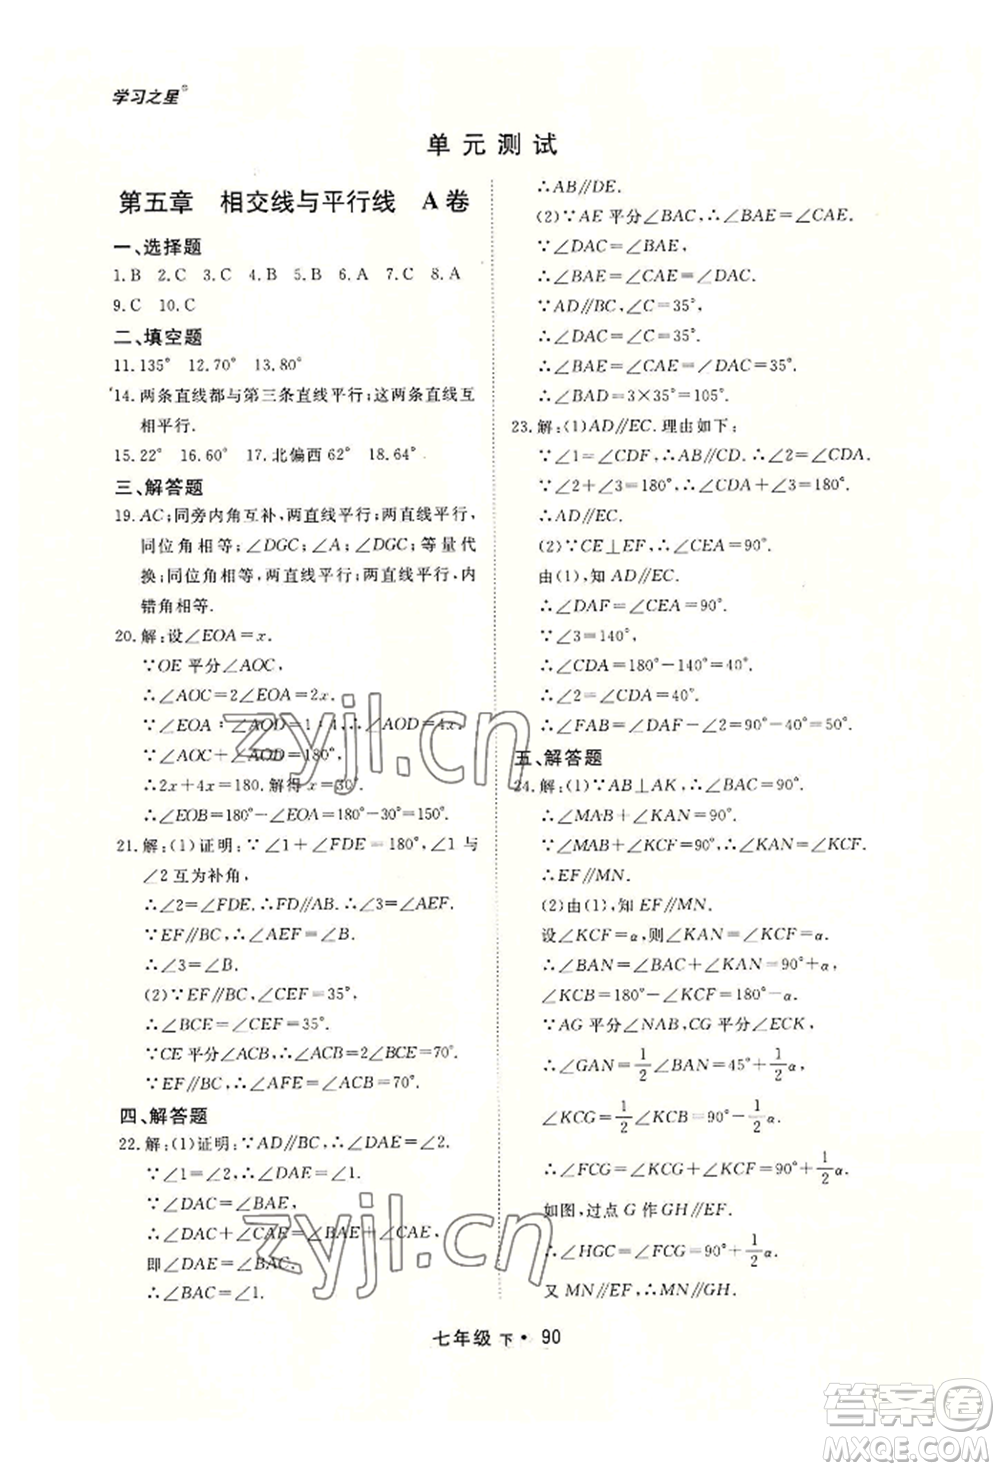 学习之星
单元测试
第五章 相交线与平行线 A卷
一、选择题
1.B 2.C 3.C 4.B 5.B 6.A 7.C 8.A
9.C 10.C
二、填空题
11.135° 12.70° 13.80°
14.两条直线都与第三条直线平行;这两条直线互
相平行.
15.22° 16.60° 17.北偏西62° 18.64°
三、解答题
19.AC;同旁内角互补,两直线平行;两直线平行,
同位角相等;∠DGC;∠A;∠DGC;等量代
换;同位角相等,两直线平行;两直线平行,内
错角相等.
20.解:设∠EOA=x.
∵OE平分∠AOC,
∴∠AOC=2∠EOA=2x.
∵∠EOA∶∠AOD=1∶4,∴∠AOD=4x.
∵∠AOC+∠AOD=180°,
∴2x+4x=180.解得x=30°.
∴∠EOB=180°-∠EOA=180°-30°=150°.
21.解:(1)证明:∵∠1+∠FDE=180°,∠1与
∠2互为补角,
∴∠2=∠FDE.∴FD∥AB.∴∠3=∠AEF.
∵EF∥BC,∴∠AEF=∠B.
∴∠3=∠B.
(2)∵EF∥BC,∠CEF=35°,
∴∠BCE=∠CEF=35°.
∵CE平分∠ACB,∴∠ACB=2∠BCE=70°.
∵EF∥BC,∴∠AFE=∠ACB=70°.
四、解答题
22.解:(1)证明:∵AD∥BC,∴∠DAE=∠2.
∵∠1=∠2,∴∠DAE=∠1.
∵∠DAC=∠BAE,
∴∠DAC+∠CAE=∠BAE+∠CAE,
即∠DAE=∠BAC.
∴∠BAC=∠1.
∴AB∥DE.
(2)∵AE平分∠BAC,∴∠BAE=∠CAE.
∵∠DAC=∠BAE,
∴∠BAE=∠CAE=∠DAC.
∵AD∥BC,∠C=35°,
∴∠DAC=∠C=35°.
∴∠BAE=∠CAE=∠DAC=35°.
∴∠BAD=3×35°=105°.
23.解:(1)AD∥EC.理由如下:
∵∠1=∠CDF,∴AB∥CD.∴∠2=∠CDA.
∵∠2+∠3=180°,∴∠CDA+∠3=180°.
∴AD∥EC.
(2)∵CE⊥EF,∴∠CEA=90°.
由(1),知AD∥EC.
∴∠DAF=∠CEA=90°.
∵∠3=140°,
∴∠CDA=180°-140°=40°.
∴∠2=∠CDA=40°.
∴∠FAB=∠DAF-∠2=90°-40°=50°.
五、解答题
24.解:(1)∵AB⊥AK,∴∠BAK=90°.
∴∠MAB+∠KAN=90°.
∵∠MAB+∠KCF=90°,∴∠KAN=∠KCF.
∴EF∥MN.
(2)由(1),知EF∥MN.
设∠KCF=α,则∠KAN=∠KCF=α.
∴∠BAN=∠BAK+∠KAN=90°+α,
∠KCB=180°-∠KCF=180°-α.
∵AG平分∠NAB,CG平分∠ECK,
∴∠GAN=1/2∠BAN=45°+1/2α,
∠KCG=1/2∠KCB=90°-1/2α.
∴∠FCG=∠KCG+∠KCF=90°+1/2α.
如图,过点G作GH∥EF.
∴∠HGC=∠FCG=90°+1/2α.
又MN∥EF,∴MN∥GH.
七年级 下·90
zyjl.cn
zyjl.cn
答案圈
MXQE.COM